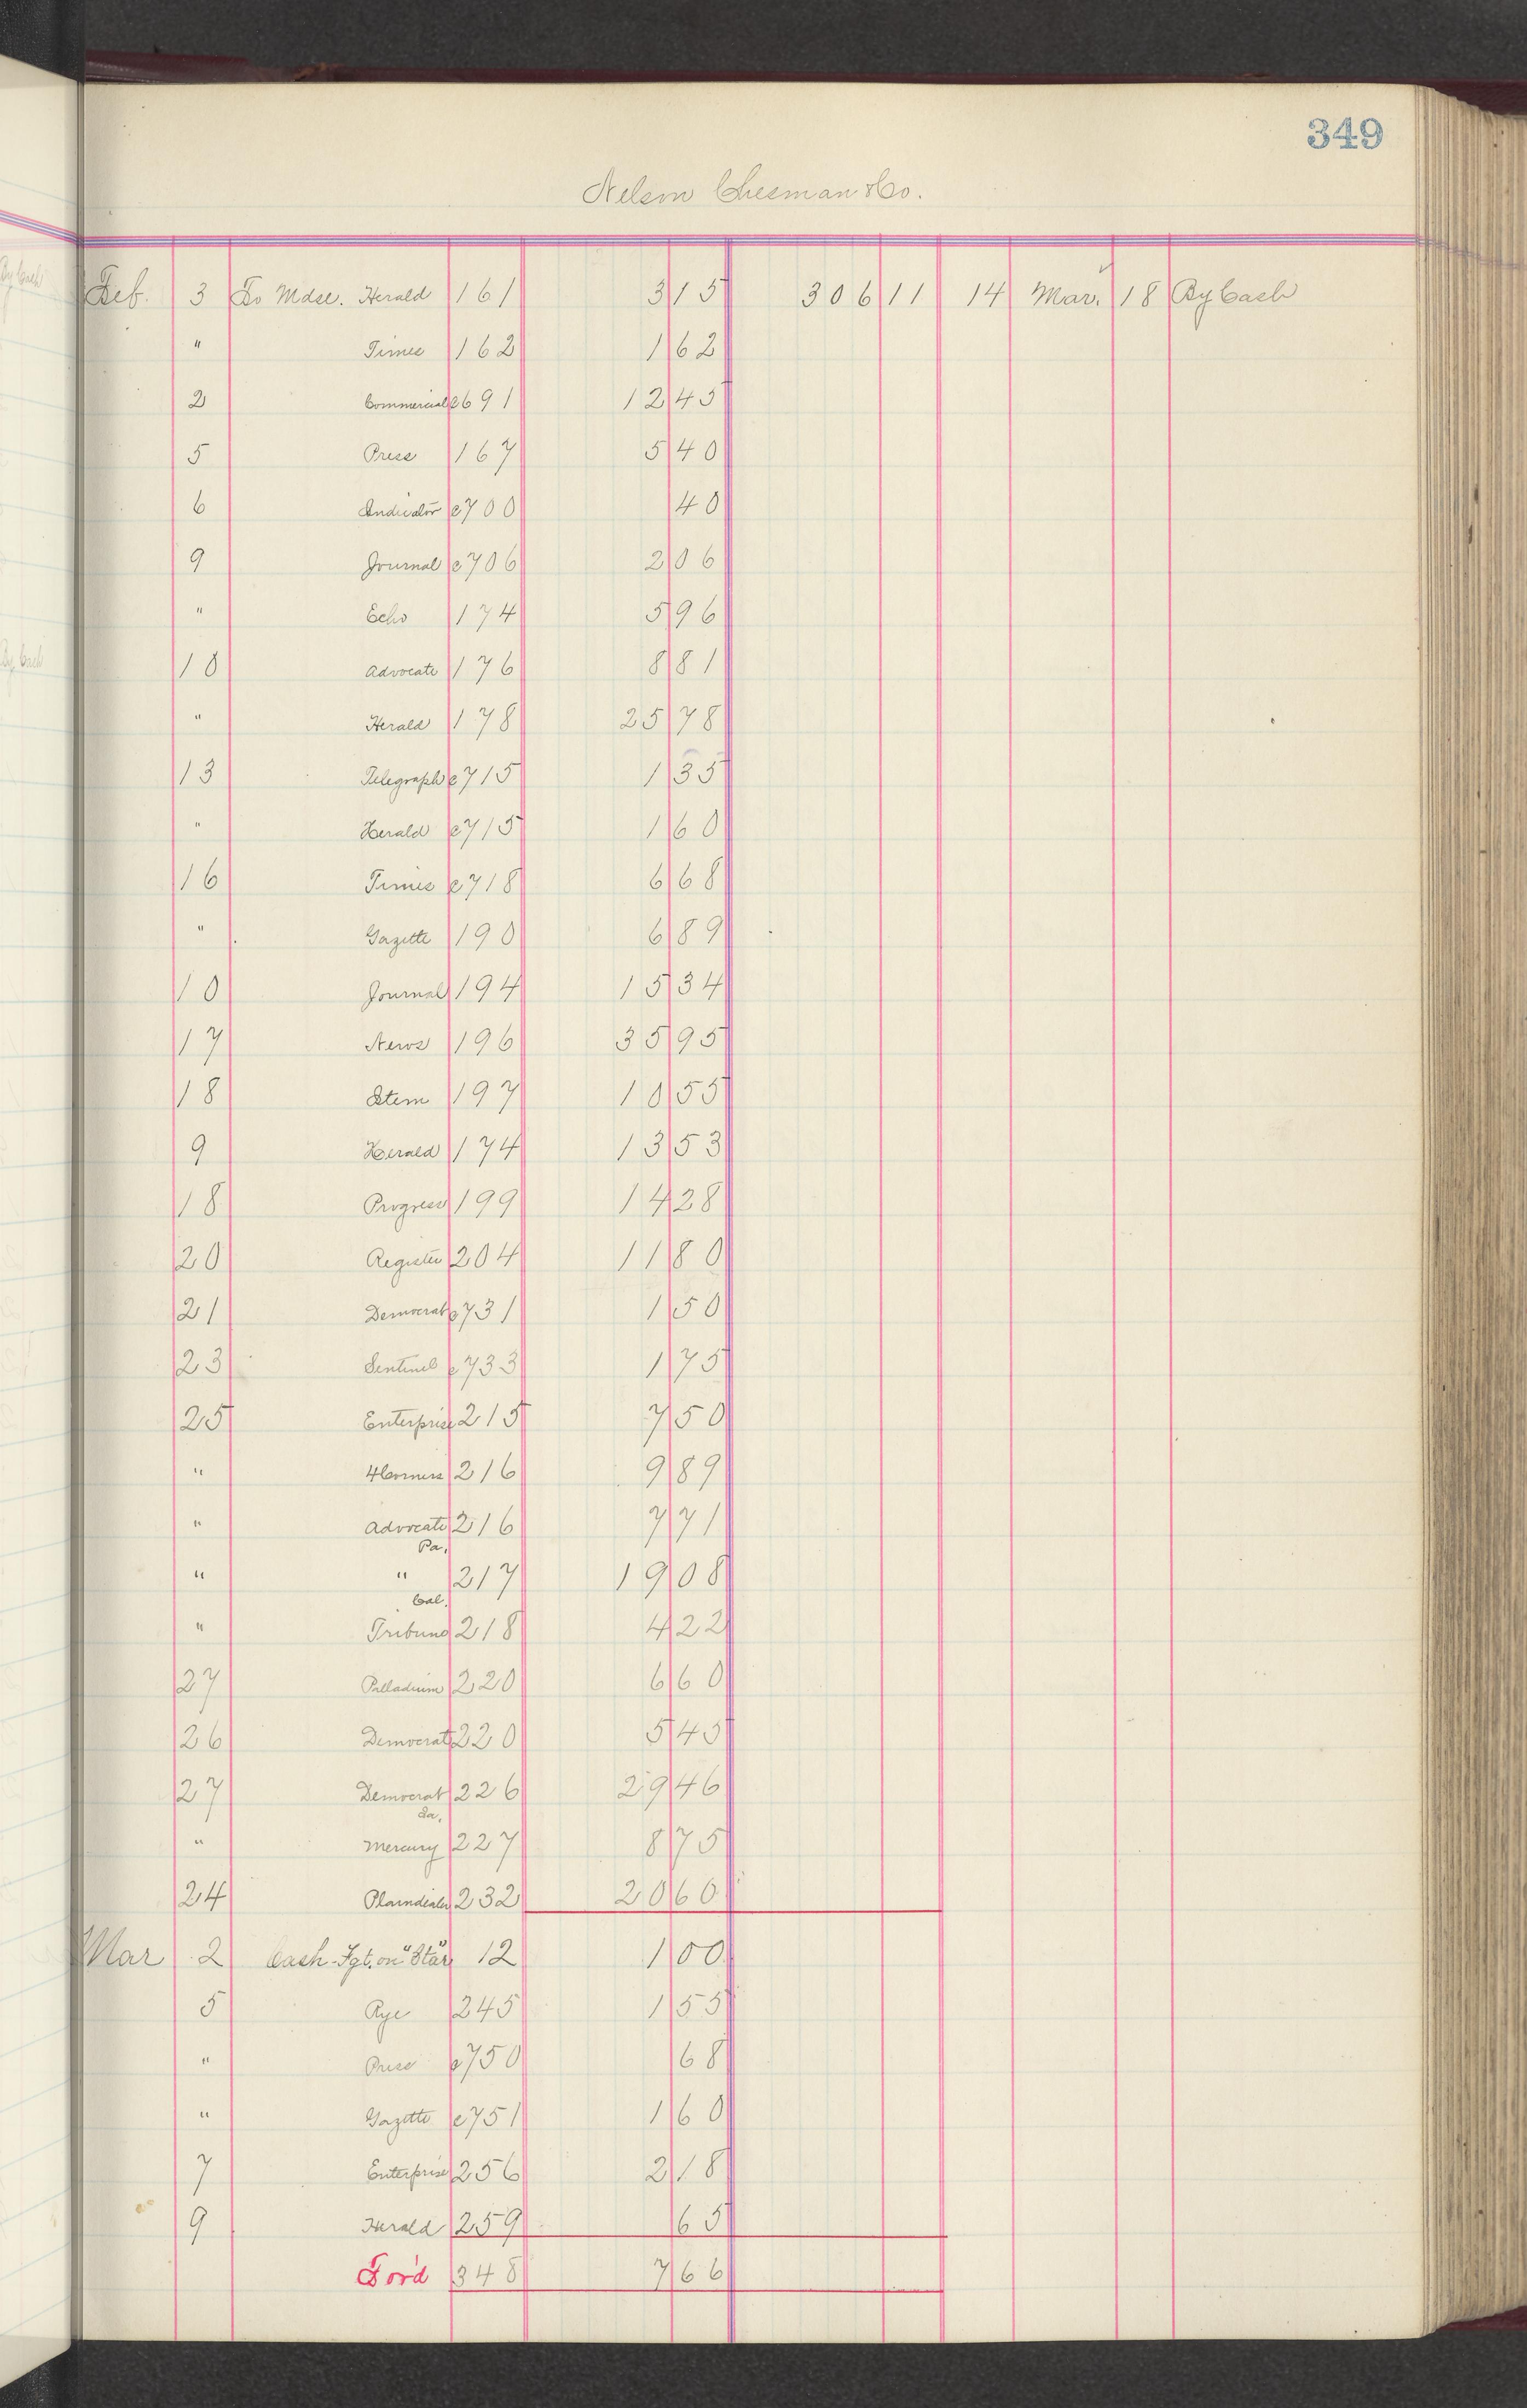 349
Nelson Chesman & Co.
Feb. 3 To Mdse. Herald 161 3 15 306 11 14 Mar. 18 By Cash
" Times 162 1 62
2 Commercial c691 12 45
5 Press 167 5 40
6 Indicator c700 40
9 Journal c706 2 06
" Echo 174 5 96
10 Advocate 176 8 81
" Herald 178 25 78
13 Telegraph c715 1 35
" Herald c715 1 60
16 Times c718 6 68
" Gazette 190 6 89
10 Journal 194 15 34
17 News 196 35 95
18 Item 197 10 55
9 Herald 174 13 53
18 Progress 199 14 28
20 Register 204 11 80
21 Democrat c731 1 50
23 Sentinel c733 1 75
25 Enterprise 215 7 50
" 4 Corners 216 9 89
" Advocate 216 7 71
Pa.
" " 217 19 08
Cal.
" Tribune 218 4 22
27 Palladium 220 6 60
26 Democrat 220 5 45
27 Democrat 226 29 46
Ia.
" Mercury 227 8 75
24 Plaindealer 232 20 60
Mar 2 Cash-Fgt. on "Star" 12 1 00
5 Rye 245 1 55
" Press c750 68
" Gazette c751 1 60
7 Enterprise 256 2 18
9 Herald 259 65
For'd 348 7 66
By Cash
By Cash